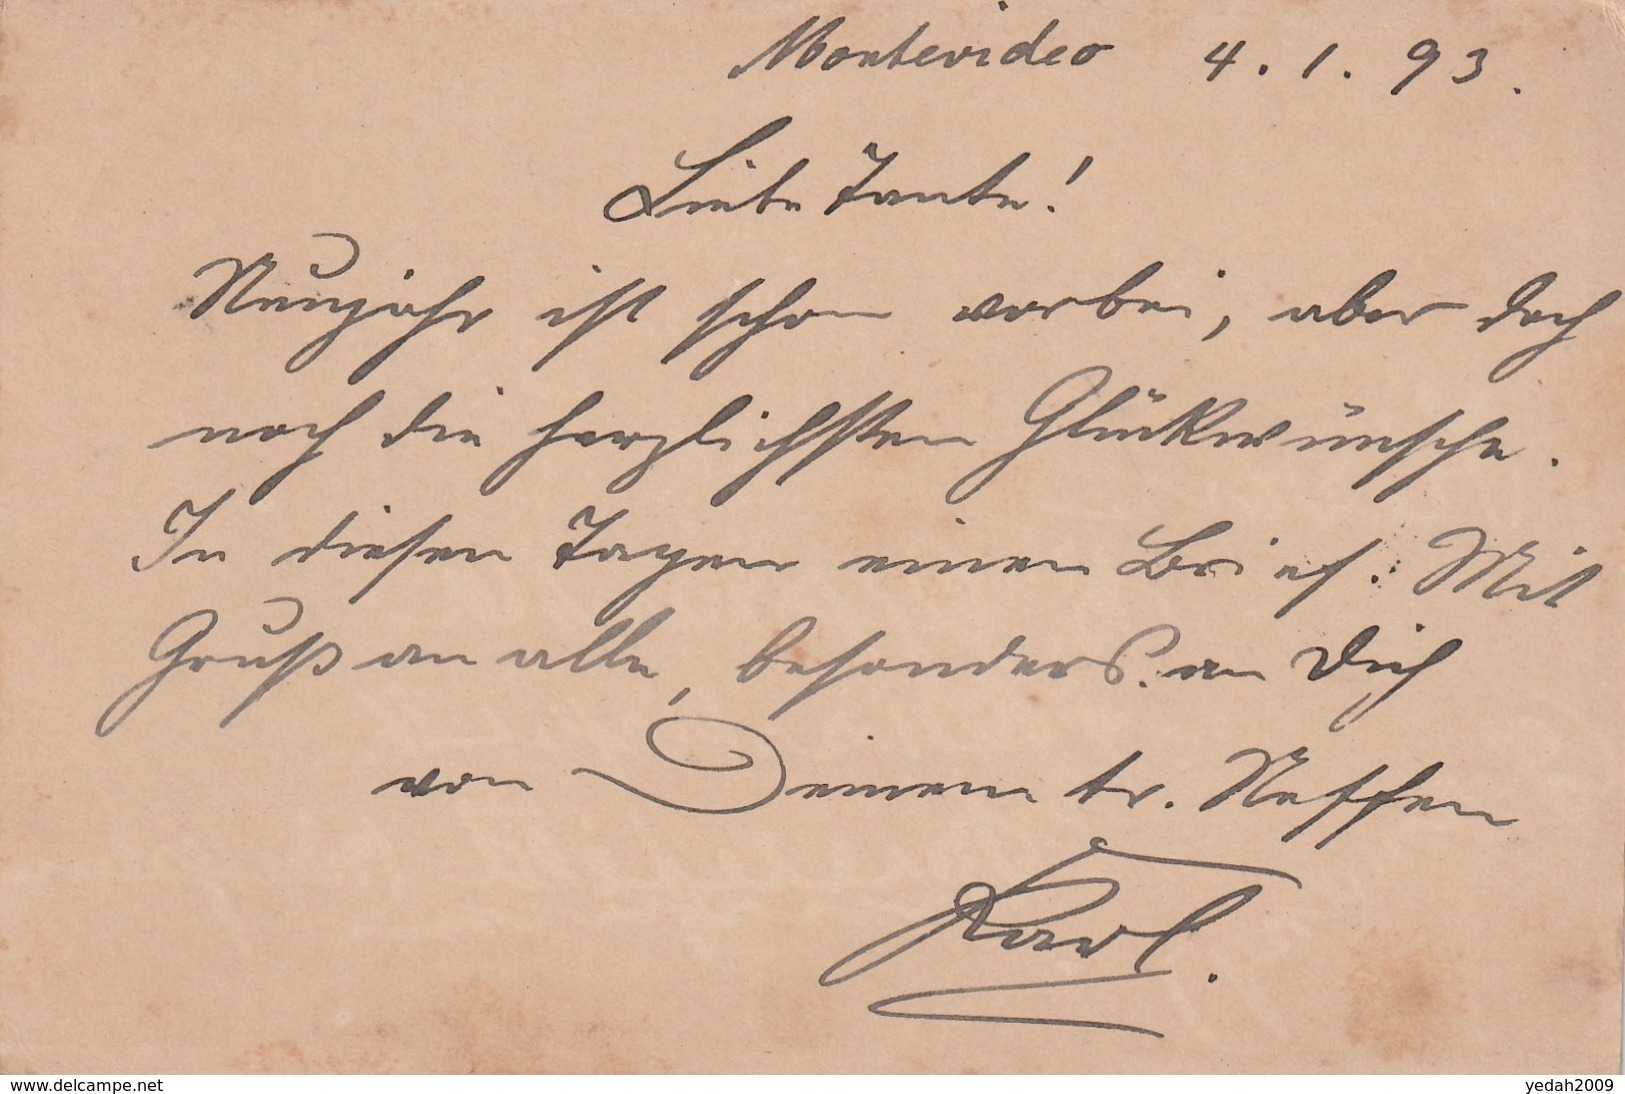 Montevideo 4.1.93.
Liebe Tante!
Neujahr ist schon vorbei, aber doch
noch die herzlichsten Glückwünsche.
In diesen Tagen einen Brief. Mit
Gruß an alle, besonders an Dich
von Deinem tr. Neffen
Karl.
www.delcampe.net
yedah2009